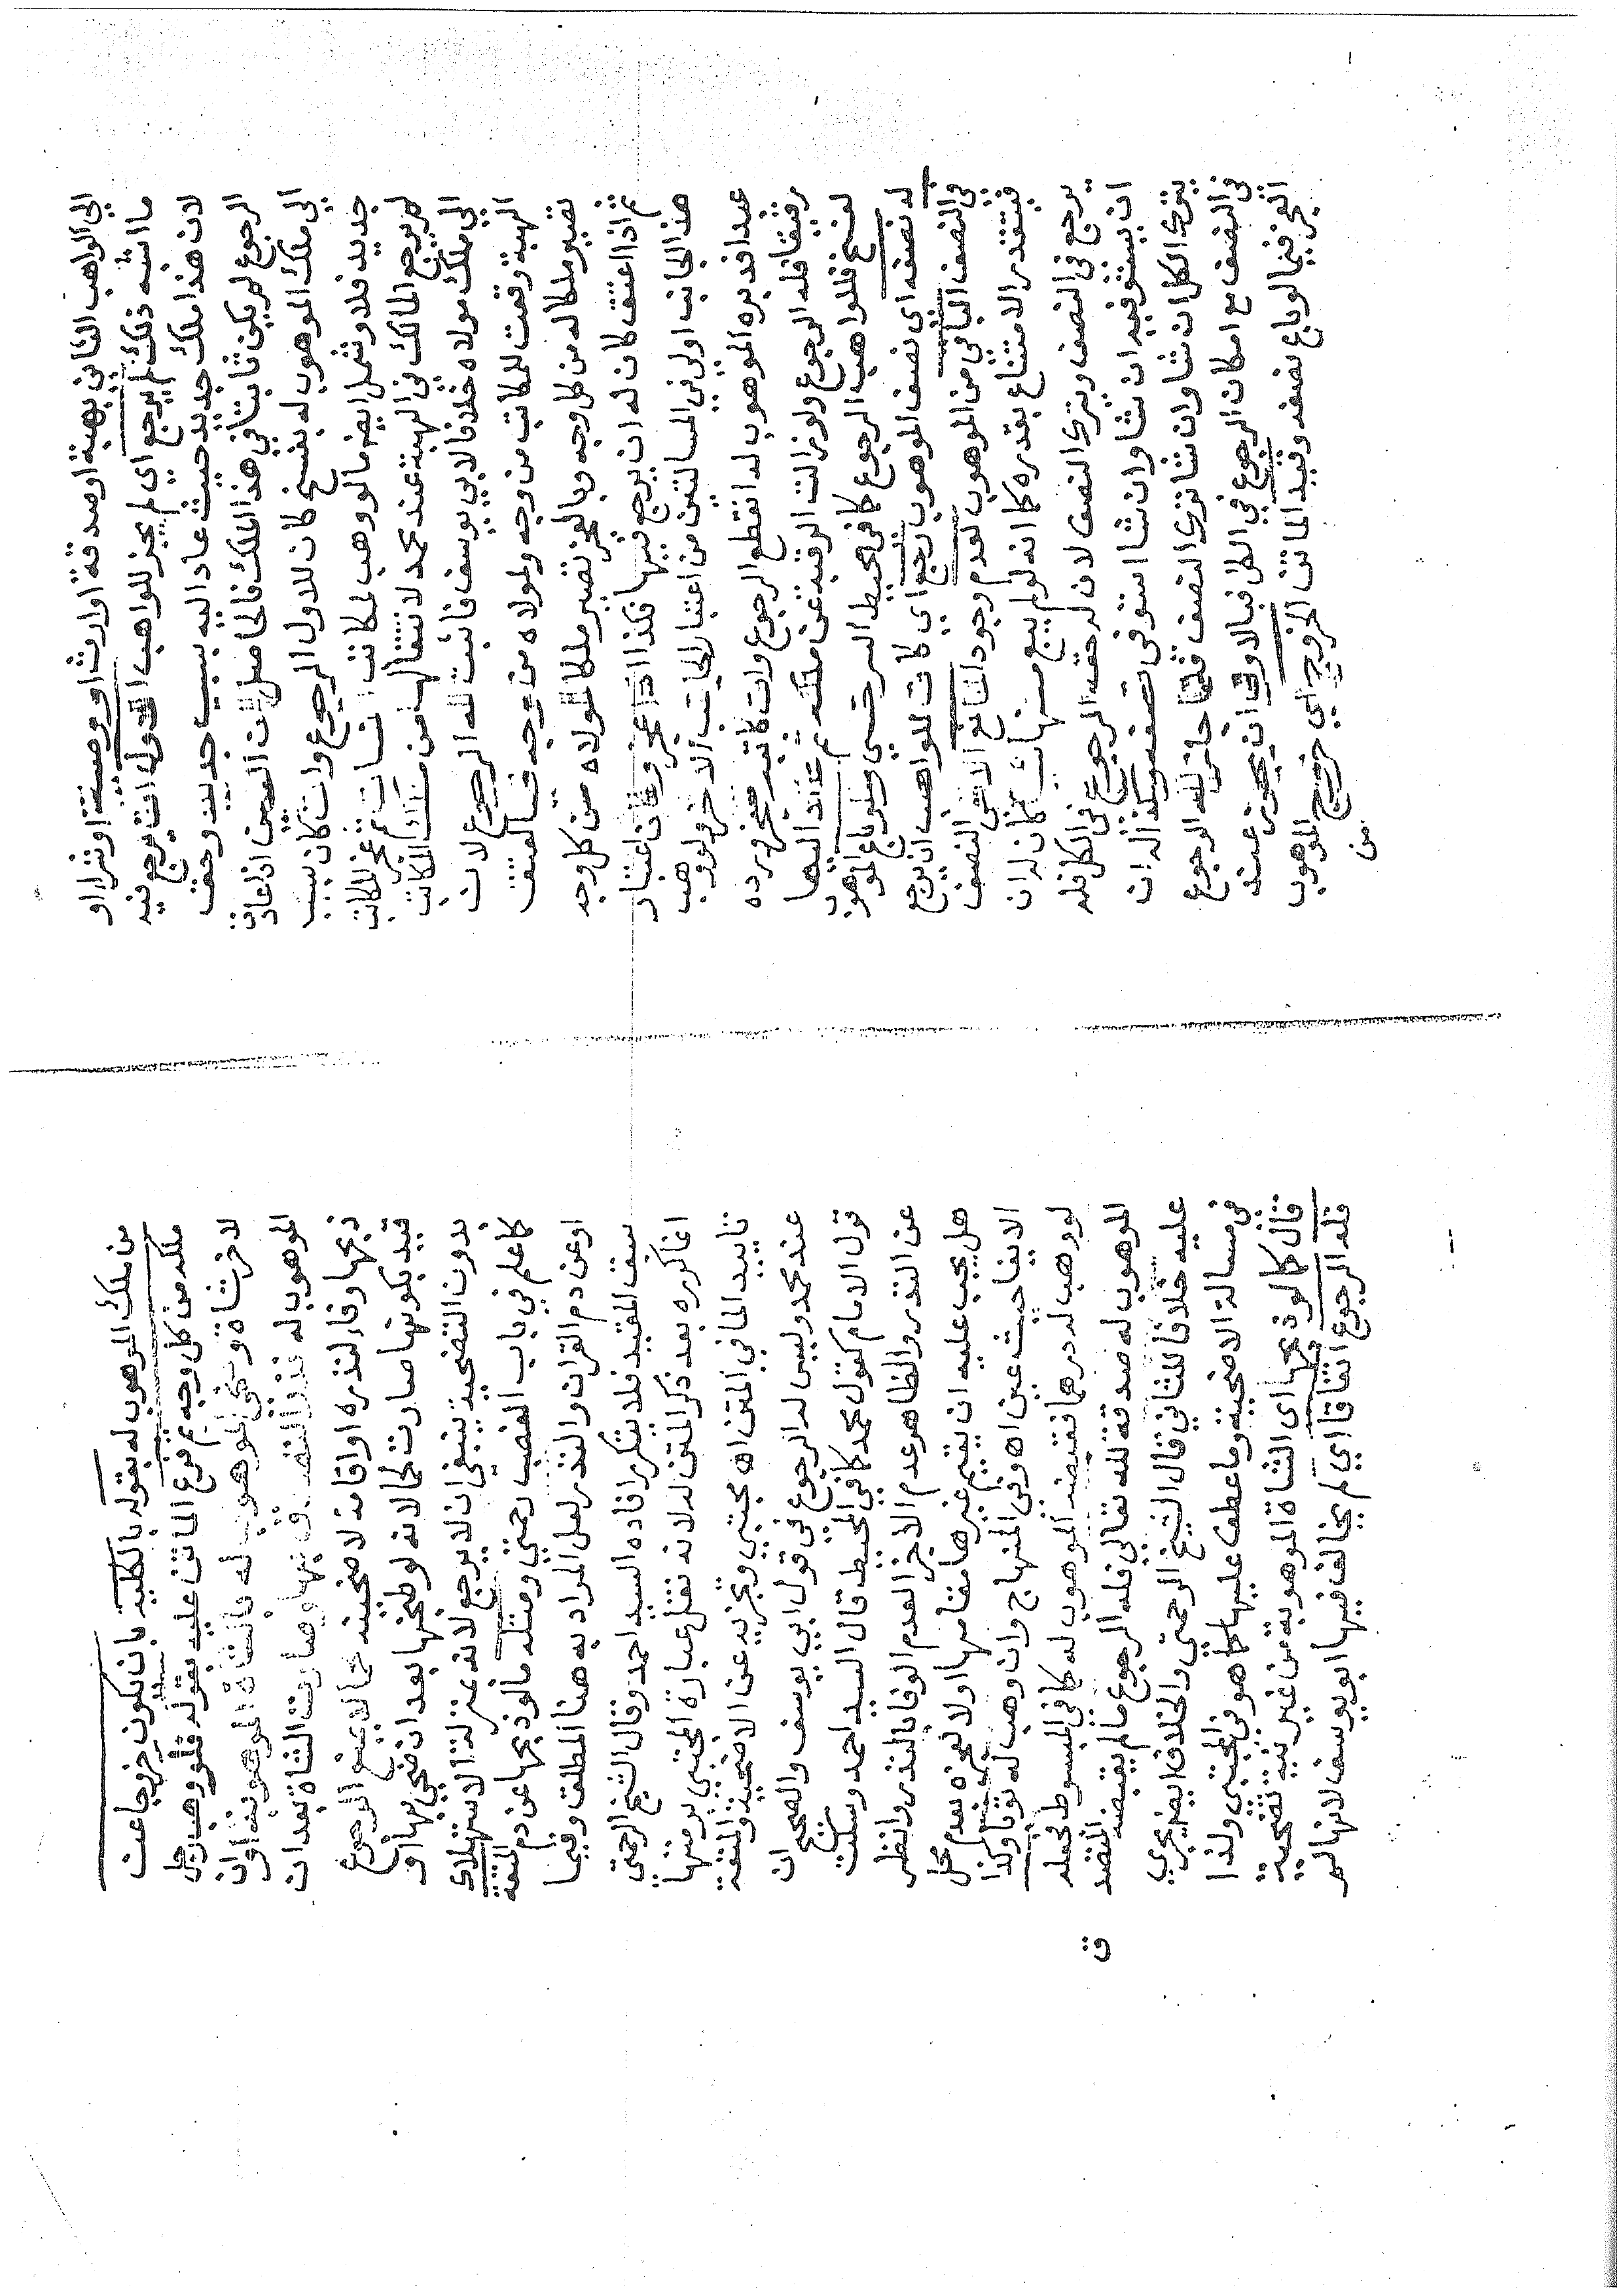 الى الواهب الثانى بهبة او صدقة او ارث او وصية او شراء او
ما اشبه ذلك لم يرجع اي لم يجز للواهب الاول ان يرجع فيه
لان هذا ملك جديد حيث عاد اليه بسبب جديد وحق
الرجوع لم يكن ثابتا في هذا الملك فالحاصل ان العين اذا عادت
الى ملك الموهوب له بفسخ كان للاول الرجوع وان كان بسبب
جديد فلا وشمل ايضه مالو وهب لمكاتب انسان ثم عجز المكاتب
لم يرجع المالك في الهبة عند محمد لانتقالها من ملك المكاتب
الى ملك مولاه خلافا لابي يوسف فاثبت له الرجوع لان
الهبة وقعت للمكاتب من وجه ولمولاه من وجه فبالعتق
تصير ملكا له من كل وجه وبالعجز تصير ملكا لمولاه من كل وجه
ثم اذا اعتق كان له ان يرجع فيها فكذا اذا عجز وكان اعتبار
هذا الجانب اولى في المسالتين من اعتبار الجانب الاخر ولو وهب
عبدا فدبره الموهوب له انقطع الرجوع وان كاتبه فعجز فرده
رقيقا فله الرجوع ولو زالت الرقبة عن ملكه ثم عاد اليها
لفسخ فللواهب الرجوع كما في محيط السرخسي ولو باع الموهوب
له نصفه اى نصف الموهوب رجع اي كان للواهب ان يرجع
في النصف الباقي من الموهوب لعدم وجود المانع الا في النصف
فيتقدر الامتناع بقدره كما انه لو لم يبع منها شئ كان له ان
يرجع في النصف ويترك النصف لان له حق الرجوع في الكل فله
ان يستوفيه ان شا وان شا استوفى نصفه وكذا له ان
يترك الكل ان شا وان شا ترك النصف فمتى جاز له الرجوع
في النصف مع امكان الرجوع في الكل فبالاولى ان يجوز عند
العجز فيما لو باع نصفه وقيد الماتن الخروج اي خروج الموهوب
من
من ملك الموهوب له بقوله بالكلية بان يكون خروجا عن
ملكه من كل وجه ثم فرع الماتن عليه بقوله فلو وهب رجل
لاخر شاة وضحى الموهوب له بالشاة الموهوبة او ان
الموهوب له نذر التصدق بها وصارت الشاة بعد ان
ذبحها وفاء لنذره او اقامة لاضحيته لحما لا يمنع الرجوع
قيد بكونها صارت لحما لانه لو طبخها بعد ان ضحى بها او
بدون التضحية ينبغي ان لا يرجع لانه بمنزلة الاستهلاك
كما علم في باب الغصب رحمتي ومثله مالو ذبحها عن دم المتعة
او عن دم القران والنذر لعل المراد به هنا المطلق وفيما
سبق المقيد فلا يتكرر افاده السيد احمد وقال الشيخ الرحمتى
انما كرره بعد ذكر المتن له لانه نقل عبارة المجتبى برمتها
تاييدا لما في المتن اه مجتبي وتجزيه عن الاضحية والمتعة
عند محمد وليس له الرجوع في قول ابي يوسف والصحيح ان
قول الامام كقول محمد كما في المحيط قال السيد احمد وسكت
عن النذر والظاهر عدم الاجزا لعدم الوفا بالنذر وانظر
هل يجب عليه ان يقيم غيرها مقامها او لا لعجزه بعدم محل
الايفا حيث عين اه وفي المنهاج وان وهب له ثوبا وكذا
لو وهب له درهما فقبضه الموهوب له كما في المبسوط فجعله
الموهوب له صدقة لله تعالى فله الرجوع مالم يقبضه المتصدق
عليه خلافا للثاني قال الشيخ الرحمتي والخلاف ايضه يجري
في مسالة الاضحية وما عطف عليها كما هو في المجتبى ولذا
قال كما لو ذبحها اى الشاة الموهوبة من غير نية تضحية
فله الرجوع اتفاقا اي لم يخالف فيها ابو يوسف لانها لم
ق